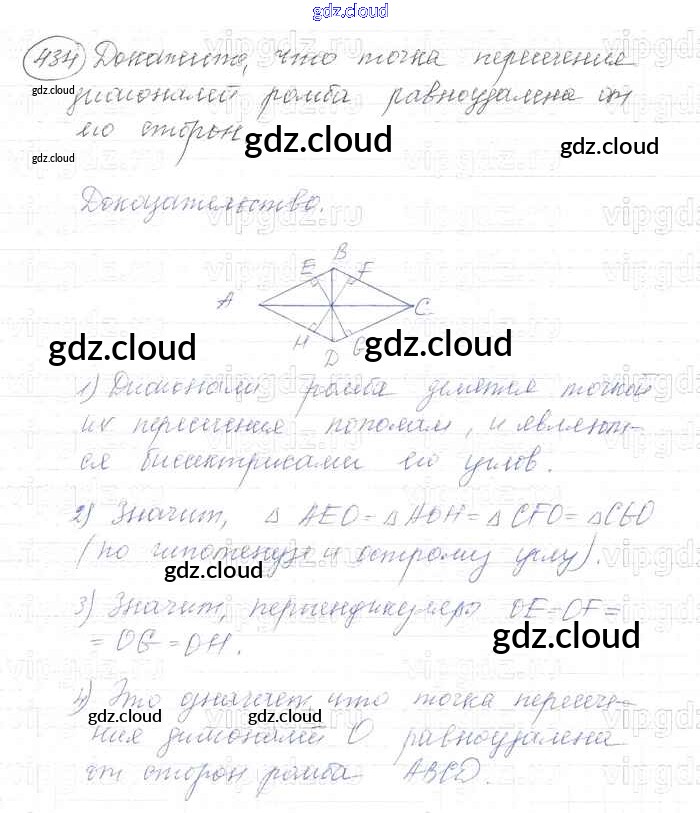 gdz.cloud
434 Докажите, что точка пересечения
диагоналей ромба равноудалена от
его сторон
gdz.cloud
gdz.cloud
gdz.cloud
gdz.cloud
Доказательство.
B
E F
A C
H G
D
gdz.cloud
gdz.cloud
1) Диагонали ромба делятся точкой
их пересечения пополам, и являют-
ся биссектрисами его углов.
2) Значит, △ AEO = △ AOH = △ CFO = △ CGO
(по гипотенузе и острому углу).
gdz.cloud
3) Значит, перпендикуляры OE = OF =
= OG = OH.
gdz.cloud
4) Это означает, что точка пересече-
ния диагоналей O равноудалена
от сторон ромба ABCD.
gdz.cloud
gdz.cloud